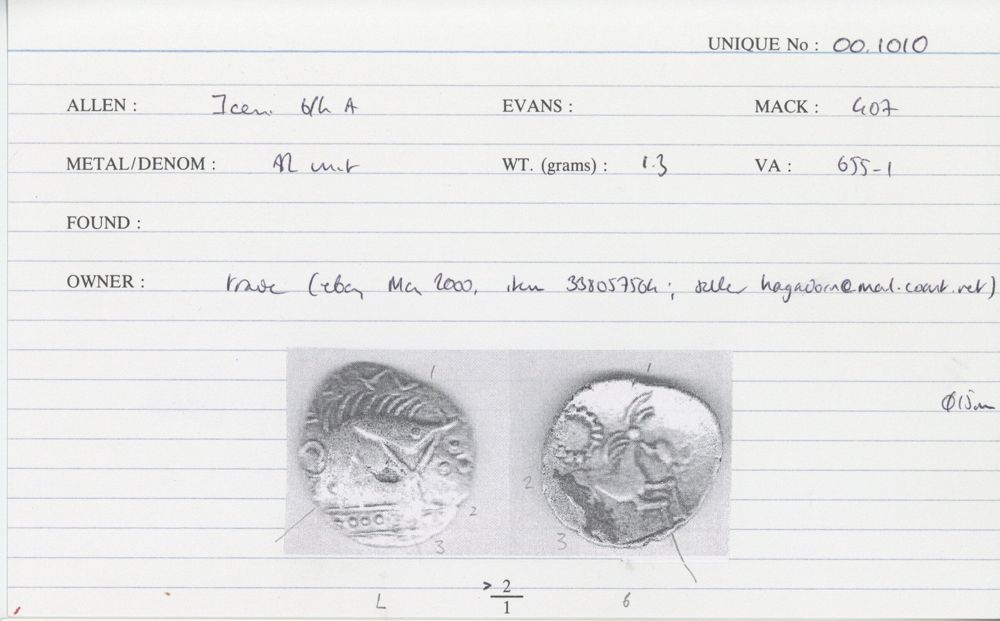 UNIQUE No : 00.1010
ALLEN : Iceni b/h A EVANS : MACK : 407
METAL/DENOM : AR unit WT. (grams) : 1.3 VA : 655-1
FOUND :
OWNER : trade (ebay, Mar 2000, item 338057564; seller hagadorn@mail.coast.net)
1 1
Ø15mm
2 2
3 3
L > 2/1 6